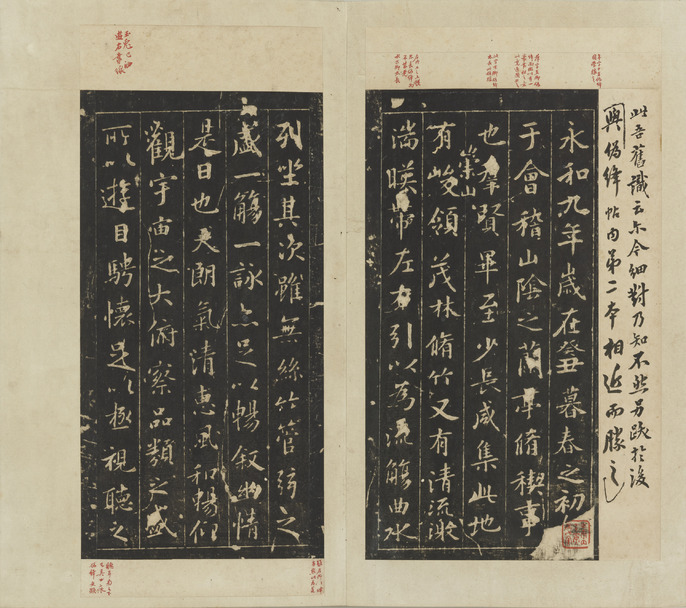 此吾舊識云尔今細對乃知不然另跋於後
與偽絳帖内第二本相近而勝之
永和九年歲在癸丑暮春之初
于會稽山陰之蘭亭脩稧事
也羣賢畢至少長咸集此地
有崇山峻領茂林脩竹又有清流激
湍暎帶左右引以為流觴曲水
列坐其次雖無絲竹管弦之
盛一觴一詠亦足以暢叙幽情
是日也天朗氣清惠風和暢仰
觀宇宙之大俯察品類之盛
所以遊目騁懷足以極視聽之